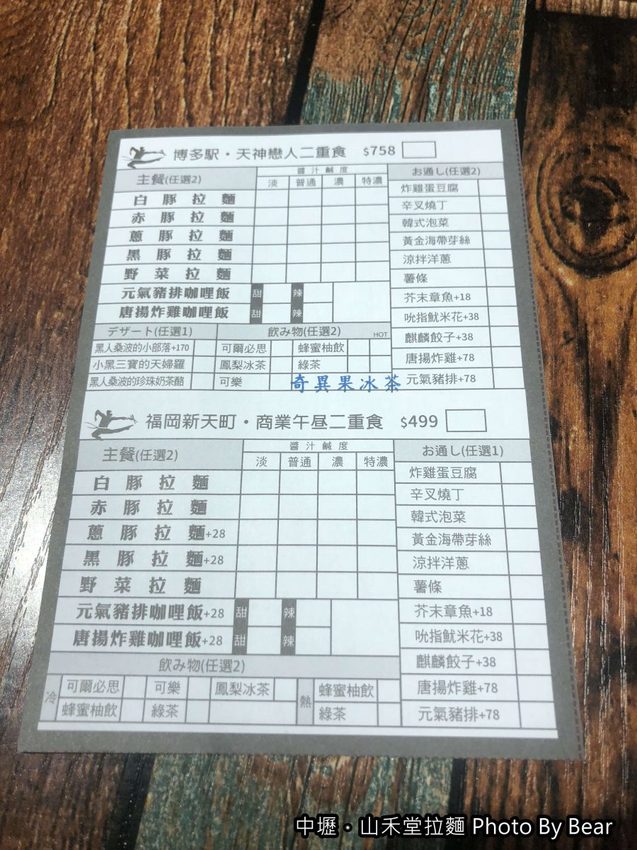 博多駅・天神戀人二重食 $758
主餐(任選2) 醬汁鹹度 お通し(任選2)
淡 普通 濃 特濃
白豚拉麵
赤豚拉麵
蔥豚拉麵
黑豚拉麵
野菜拉麵
元氣豬排咖哩飯 甜 辣
唐揚炸雞咖哩飯 甜 辣
炸雞蛋豆腐
辛叉燒丁
韓式泡菜
黃金海帶芽絲
涼拌洋蔥
薯條
芥末章魚+18
吮指魷米花+38
麒麟餃子+38
唐揚炸雞+78
元氣豬排+78
デザート(任選1) 飲み物(任選2) HOT
黑人桑波的小部落+170 可爾必思 蜂蜜柚飲
小黑三寶的天婦羅 鳳梨冰茶 綠茶
黑人桑波的珍珠奶茶酪 可樂 奇異果冰茶
福岡新天町・商業午昼二重食 $499
主餐(任選2) 醬汁鹹度 お通し(任選1)
淡 普通 濃 特濃
白豚拉麵
赤豚拉麵
蔥豚拉麵+28
黑豚拉麵+28
野菜拉麵
元氣豬排咖哩飯+28 甜 辣
唐揚炸雞咖哩飯+28 甜 辣
炸雞蛋豆腐
辛叉燒丁
韓式泡菜
黃金海帶芽絲
涼拌洋蔥
薯條
芥末章魚+18
吮指魷米花+38
麒麟餃子+38
唐揚炸雞+78
元氣豬排+78
飲み物(任選2)
冷 可爾必思 可樂 鳳梨冰茶 熱 蜂蜜柚飲
蜂蜜柚飲 綠茶 綠茶
中壢・山禾堂拉麵 Photo By Bear